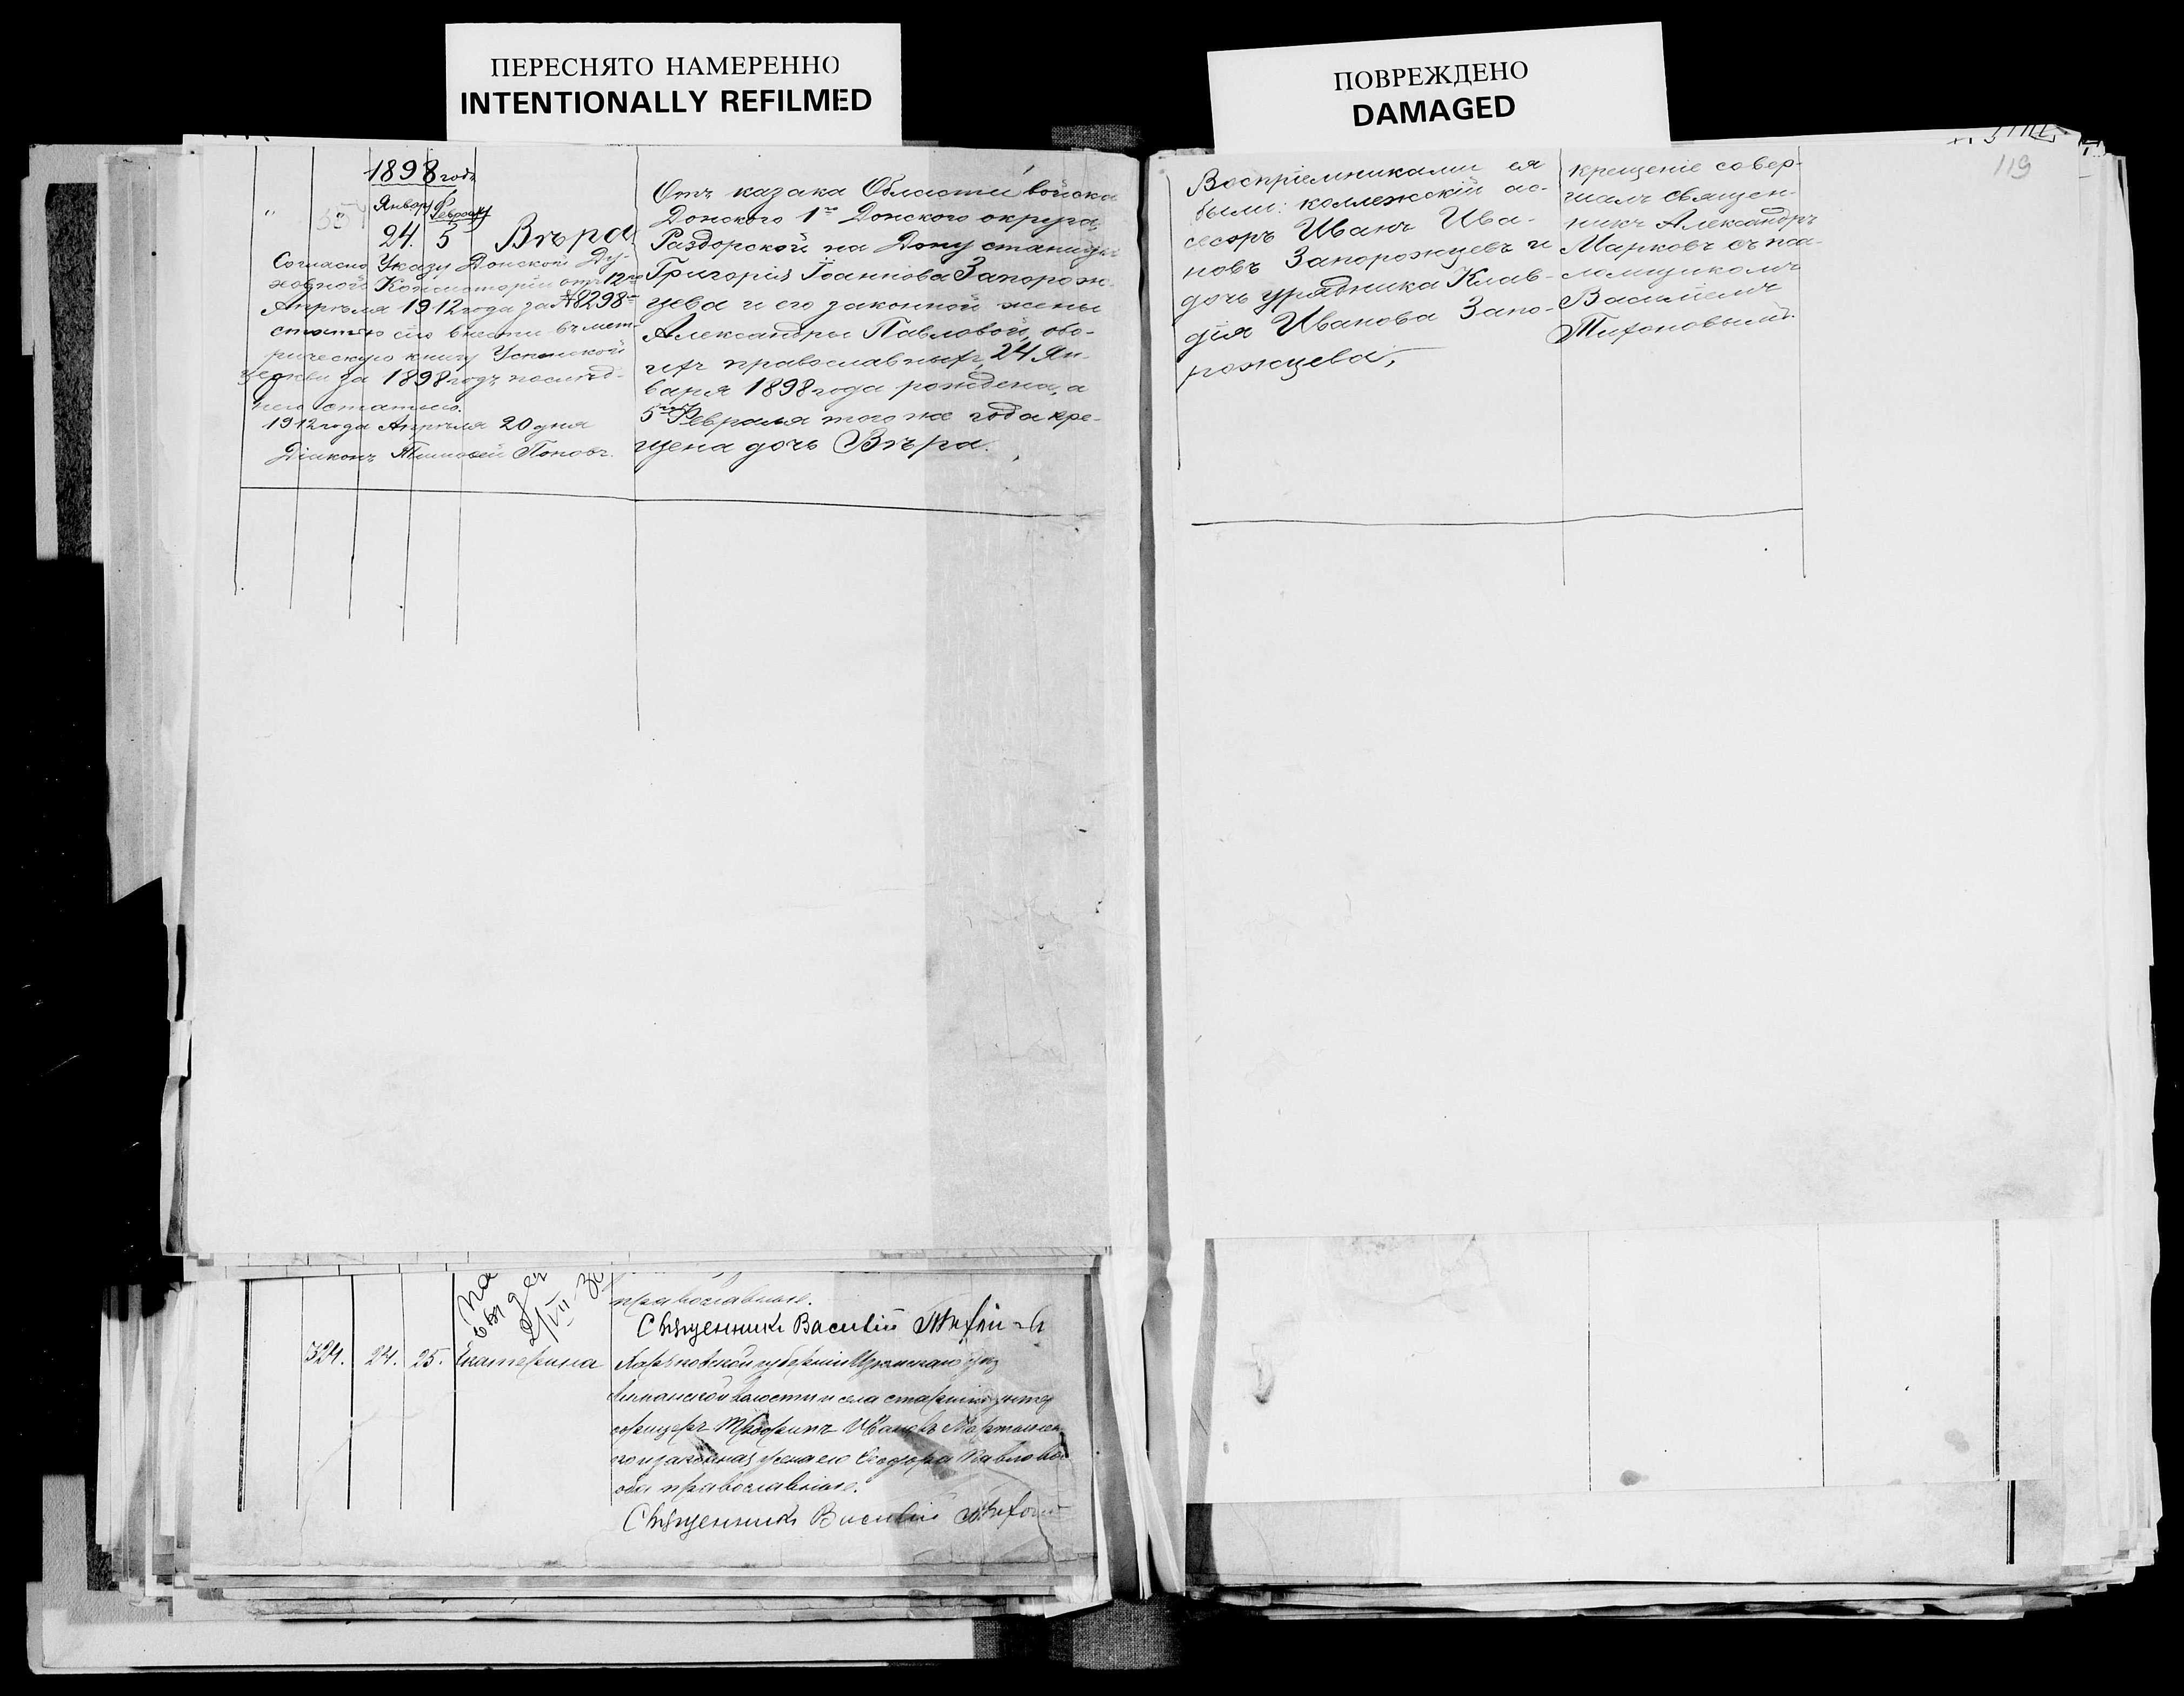 ПЕРЕСНЯТО НАМЕРЕННО
INTENTIONALLY REFILMED
ПОВРЕЖДЕНО
DAMAGED
119
1898 года
Январ Февраль
24. 5 Вѣра
Согласно Указу Донской Ду-
ховной Консисторіи отъ 12го
Апрѣля 1912 года за № 8298м
статью сію внести въ мет-
рическую книгу Успенской
церкви за 1898 годъ послѣд-
нею статьею.
1912 года Апрѣля 20 дня
Діаконъ Тимоѳей Поповъ.
Отъ казака Области войска
Донского 1го Донского округа,
Раздорской на Дону станицы
Григорія Іоаннова Запорож-
цева и его законной жены
Александры Павловой, обо-
ихъ православныхъ, 24 Ян-
варя 1898 года рождена, а
5го Февраля того же года кре-
щена дочь Вѣра.
Воспріемниками ея
были: коллежскій ас-
сесоръ Иванъ Ива-
новъ Запорожцевъ и
дочь урядника Клав-
дія Иванова Запо-
рожцева.
Крещеніе совер-
шалъ священ-
никъ Александръ
Марковъ съ пса-
ломщикомъ
Василіемъ
Тихоновымъ.
православные.
Священникъ Василій
324. 24. 25. Екатерина
Харьковской губерніи Изюмскаго
Лиманской волости и села старшій унтер
офицеръ Трофимъ Ивановъ Мартынен
ко и законная жена его Ѳеодора Павлова
оба православные.
Священникъ Василій